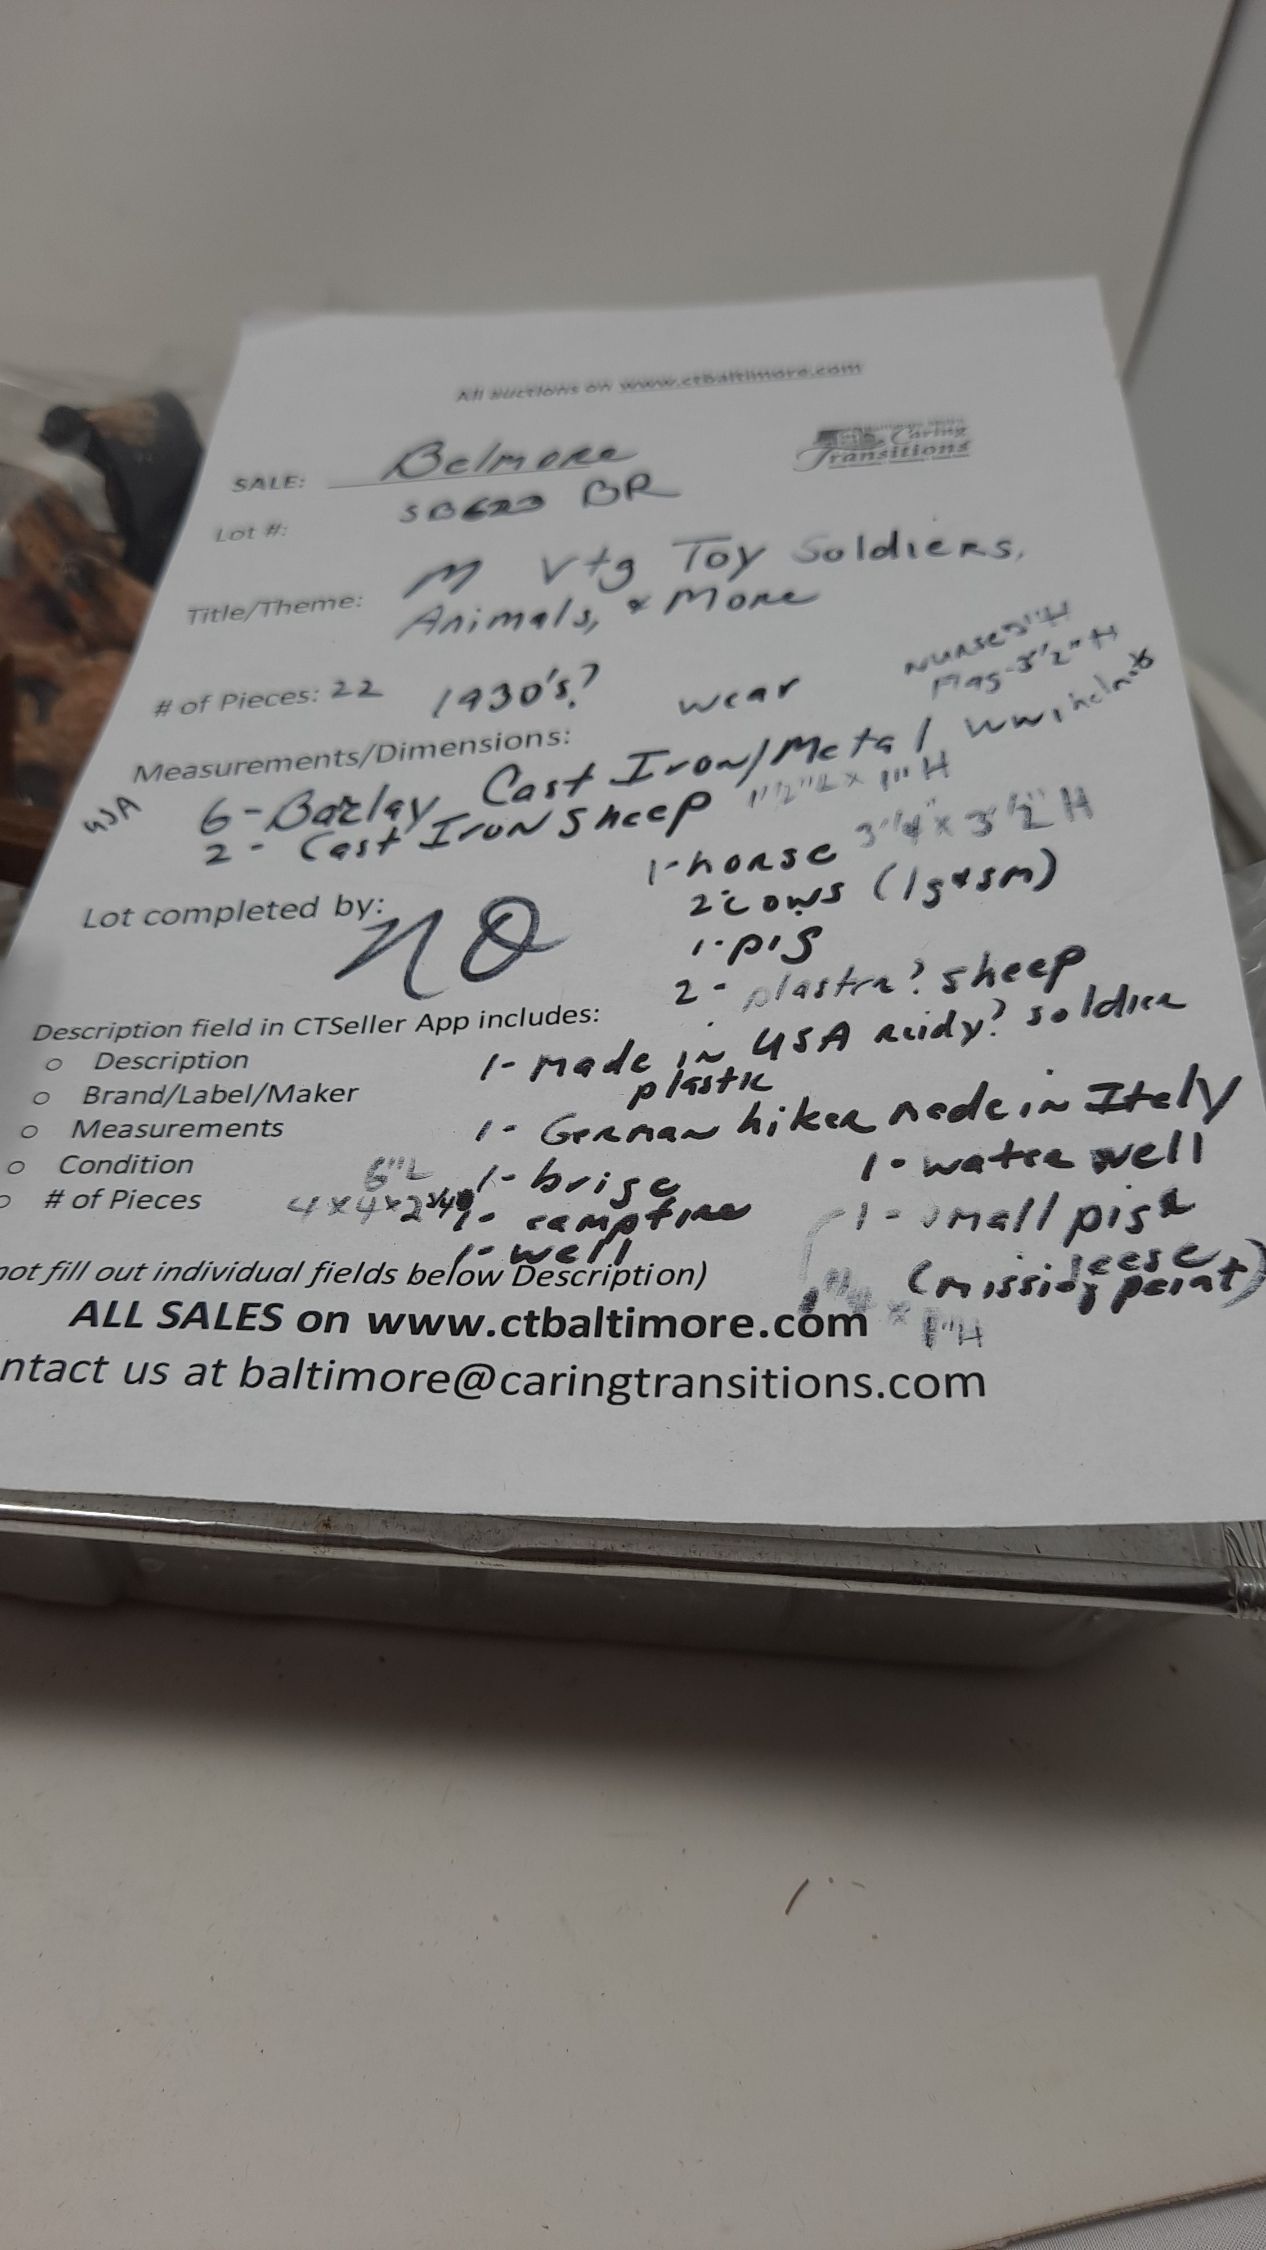 All auctions on www.ctbaltimore.com
Caring
Transitions
SALE: Belmore
Lot #: SB623 BR
Title/Theme: M Vtg Toy Soldiers,
Animals, & More
# of Pieces: 22 1930's? wear
Nurse 3"H
Flag-3½"H
Measurements/Dimensions:
USA 6-Barlay Cast Iron/Metal WW1 helmets
2- Cast Iron Sheep 1½"L x 1"H
1-horse 3¼" x 3½"H
2 cows (lg & sm)
Lot completed by: NO
1-pig
2- plaster? sheep
Description field in CTSeller App includes:
1- Made in USA Reidy? soldier
plastic
o Description
o Brand/Label/Maker
o Measurements
o Condition
o # of Pieces
1- German hiker made in Itely
6"L 1- brige
1- water well
4x4x2¾ 1- campfire
1- small pig &
1- well
geese
(missing paint)
not fill out individual fields below Description)
x 1"H
ALL SALES on www.ctbaltimore.com
ntact us at baltimore@caringtransitions.com